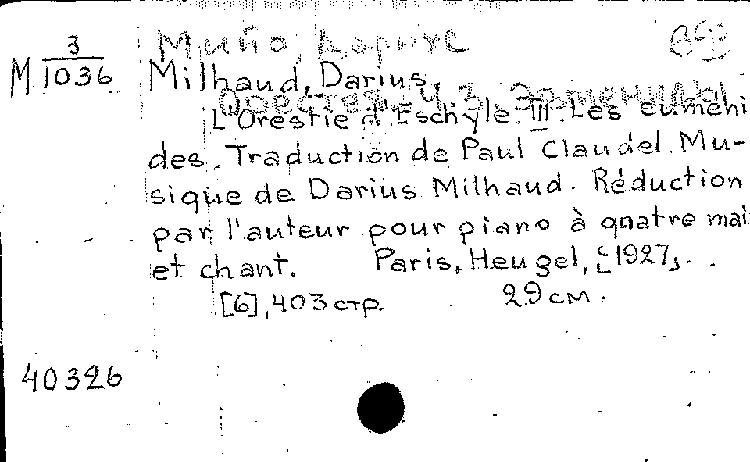 Мийо, Дариус
M 3/1036 Milhaud, Darius.
Орестея. Ч. 3. Эвмениды
L'Orestie d'Eschyle. III. Les euméni
des. Traduction de Paul Claudel. Mu-
sique de Darius Milhaud. Réduction
par l'auteur pour piano à quatre mai
et chant. Paris, Heugel, [1927].
[6], 403 стр. 29 см.
40326